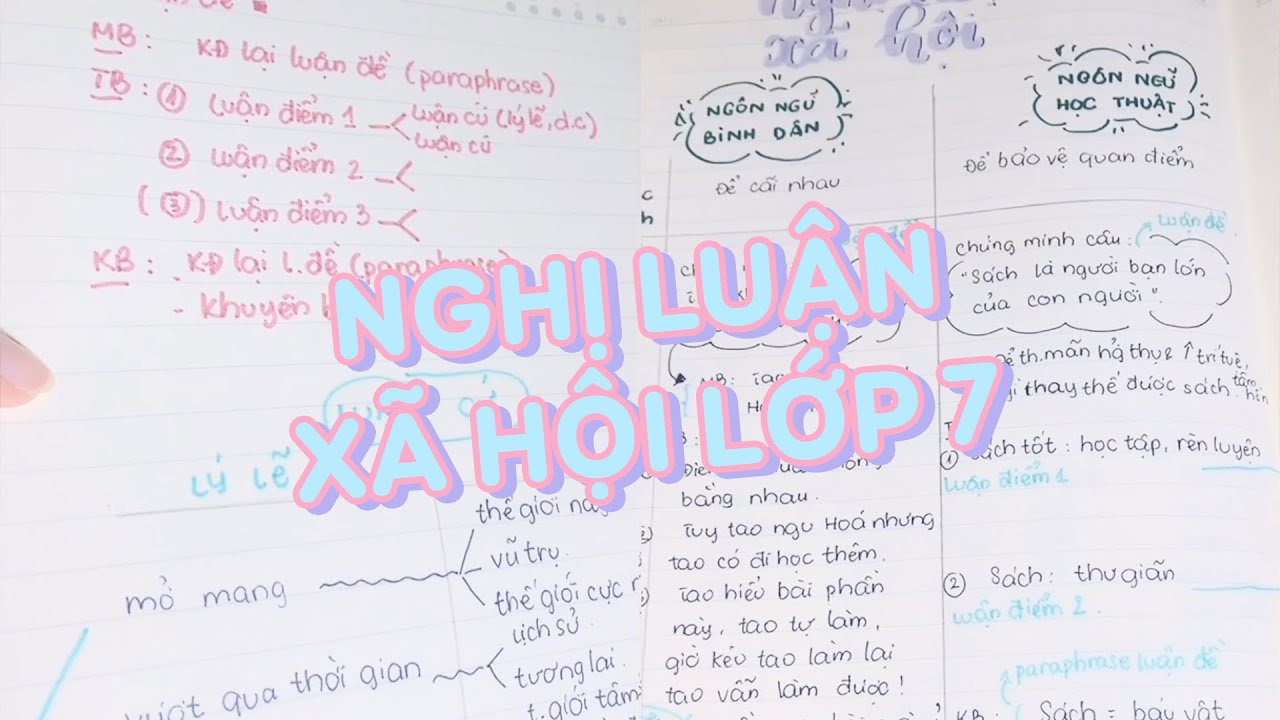 MB: KĐ lại luận đề (paraphrase)
TB: ① luận điểm 1 luận cứ (lý lẽ, d.c)
luận cứ
② luận điểm 2
(③) luận điểm 3
KB: KĐ lại l.đề (paraphrase)
- khuyên
lý lẽ
mở mang
thế giới này
vũ trụ.
thế giới cực
vượt qua thời gian
lịch sử.
tương lai.
t.giới tâm
xã hội
NGÔN NGỮ
BÌNH DÂN
Để cãi nhau
MB:
bằng nhau.
Tuy tao ngu Hoá nhưng
tao có đi học thêm.
Tao hiểu bài phần
này, tao tự làm,
giờ kêu tao làm lại
tao vẫn làm được!
NGÔN NGỮ
HỌC THUẬT
Để bảo vệ quan điểm
luận đề
chứng minh câu:
"Sách là người bạn lớn
của con người".
để th.mãn h/ả thụ & ↑ trí tuệ,
thay thế được sách.
① sách tốt: học tập, rèn luyện
luận điểm 1
② Sách: thư giãn
luận điểm 2.
paraphrase luận đề
KB: Sách = báu vật
NGHỊ LUẬN
XÃ HỘI LỚP 7